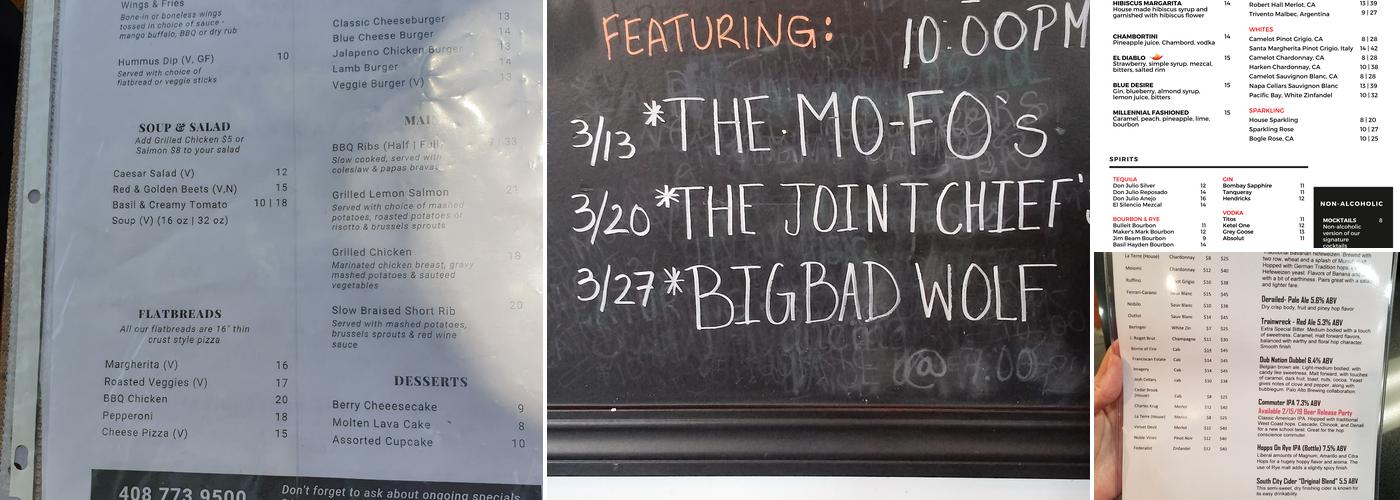 Wings & Fries
Bone-in or boneless wings
tossed in choice of sauce -
mango buffalo, BBQ or dry rub
Hummus Dip (V, GF) 10
Served with choice of
flatbread or veggie sticks
SOUP & SALAD
Add Grilled Chicken $5 or
Salmon $8 to your salad
Caesar Salad (V) 12
Red & Golden Beets (V,N) 15
Basil & Creamy Tomato 10 | 18
Soup (V) (16 oz | 32 oz)
FLATBREADS
All our flatbreads are 16" thin
crust style pizza
Margherita (V) 16
Roasted Veggies (V) 17
BBQ Chicken 20
Pepperoni 18
Cheese Pizza (V) 15
Classic Cheeseburger 13
Blue Cheese Burger 14
Jalapeno Chicken Burger 13
Lamb Burger 14
Veggie Burger (V) 13
BBQ Ribs (Half | Full) 33
Slow cooked, served with
coleslaw & papas bravas
Grilled Lemon Salmon 21
Served with choice of mashed
potatoes, roasted potatoes or
risotto & brussels sprouts
Grilled Chicken 18
Marinated chicken breast, gravy
mashed potatoes & sauteed
vegetables
Slow Braised Short Rib 20
Served with mashed potatoes,
brussels sprouts & red wine
sauce
DESSERTS
Berry Cheeesecake 9
Molten Lava Cake 8
Assorted Cupcake 10
408 773 9500
Don't forget to ask about ongoing specials
FEATURING: 10:00PM
3/13 *THE MO-FO's
3/20 *THE JOINT CHIEF'
3/27 *BIG BAD WOLF
@ 7:00
HIBISCUS MARGARITA 14
House made hibiscus syrup and
garnished with hibiscus flower
CHAMBORTINI 14
Pineapple juice, Chambord, vodka
EL DIABLO 15
Strawberry, simple syrup, mezcal,
bitters, salted rim
BLUE DESIRE 15
Gin, blueberry, almond syrup,
lemon juice, bitters
MILLENNIAL FASHIONED 15
Caramel, peach, pineapple, lime,
bourbon
Robert Hall Merlot, CA 13 | 39
Trivento Malbec, Argentina 9 | 27
WHITES
Camelot Pinot Grigio, CA 8 | 28
Santa Margherita Pinot Grigio, Italy 14 | 42
Camelot Chardonnay, CA 8 | 28
Harken Chardonnay, CA 10 | 38
Camelot Sauvignon Blanc, CA 8 | 28
Napa Cellars Sauvignon Blanc 13 | 39
Pacific Bay, White Zinfandel 10 | 32
SPARKLING
House Sparkling 8 | 20
Sparkling Rose 10 | 27
Bogle Rose, CA 10 | 25
SPIRITS
TEQUILA
Don Julio Silver 12
Don Julio Reposado 14
Don Julio Anejo 16
El Silencio Mezcal 14
BOURBON & RYE
Bulleit Bourbon 11
Maker's Mark Bourbon 12
Jim Beam Bourbon 9
Basil Hayden Bourbon 14
GIN
Bombay Sapphire 11
Tanqueray 11
Hendricks 12
VODKA
Titos 11
Ketel One 12
Grey Goose 13
Absolut 11
NON-ALCOHOLIC
MOCKTAILS 8
Non-alcoholic
version of our
signature
cocktails
La Terre (House) Chardonnay $8 $25
Meiomi Chardonnay $12 $40
Ruffino Pinot Grigio $10 $38
Ferrari-Carano Sauv Blanc $15 $45
Nobilo Sauv Blanc $10 $38
Outlot Sauv Blanc $14 $45
Beringer White Zin $7 $25
J. Roget Brut Champagne $11 $30
Borne of Fire Cab $14 $45
Franciscan Estate Cab $14 $45
Imagery Cab $14 $45
Josh Cellars cab $10 $38
Cedar Brook
(House) Cab $8 $25
Charles Krug Merlot $12 $40
La Terre (House) Merlot $8 $25
Velvet Devil Merlot $11 $40
Noble Vines Pinot Noir $12 $40
Federalist Zinfandel $12 $40
Traditional Bavarian hefeweizen. Brewed with
two row, wheat and a splash of
Hopped with German Tradition hops.
Hefeweizen yeast. Flavors of Banana and
with a bit of earthiness. Pairs great with a salad
and lighter fare.
Derailed- Pale Ale 5.6% ABV
Dry crisp body, fruit and piney hop flavor
Trainwreck - Red Ale 5.3% ABV
Extra Special Bitter. Medium bodied with a touch
of sweetness. Caramel, malt forward flavors,
balanced with earthy and floral hop character.
Smooth finish.
Dub Nation Dubbel 6.4% ABV
Belgian brown ale. Light-medium bodied, with
candy like sweetness. Malt forward, with touches
of caramel, dark fruit, toast, nuts, cocoa. Yeast
gives notes of clove and pepper, along with
bubblegum. Palo Alto Brewing collaboration.
Commuter IPA 7.3% ABV
Available 2/15/19 Beer Release Party
Classic American IPA. Hopped with traditional
West Coast hops. Cascade, Chinook, and Denali
for a new school twist. Great for the hop
conscience commuter.
Hopps On Rye IPA (Bottle) 7.5% ABV
Liberal amounts of Magnum, Amarillo and Citra
Hops for a hugely hoppy flavor and aroma. The
use of Rye malt adds a slightly spicy finish.
South City Cider "Original Blend" 5.5
This semi-sweet, dry finishing cider is known for
its easy drinkability